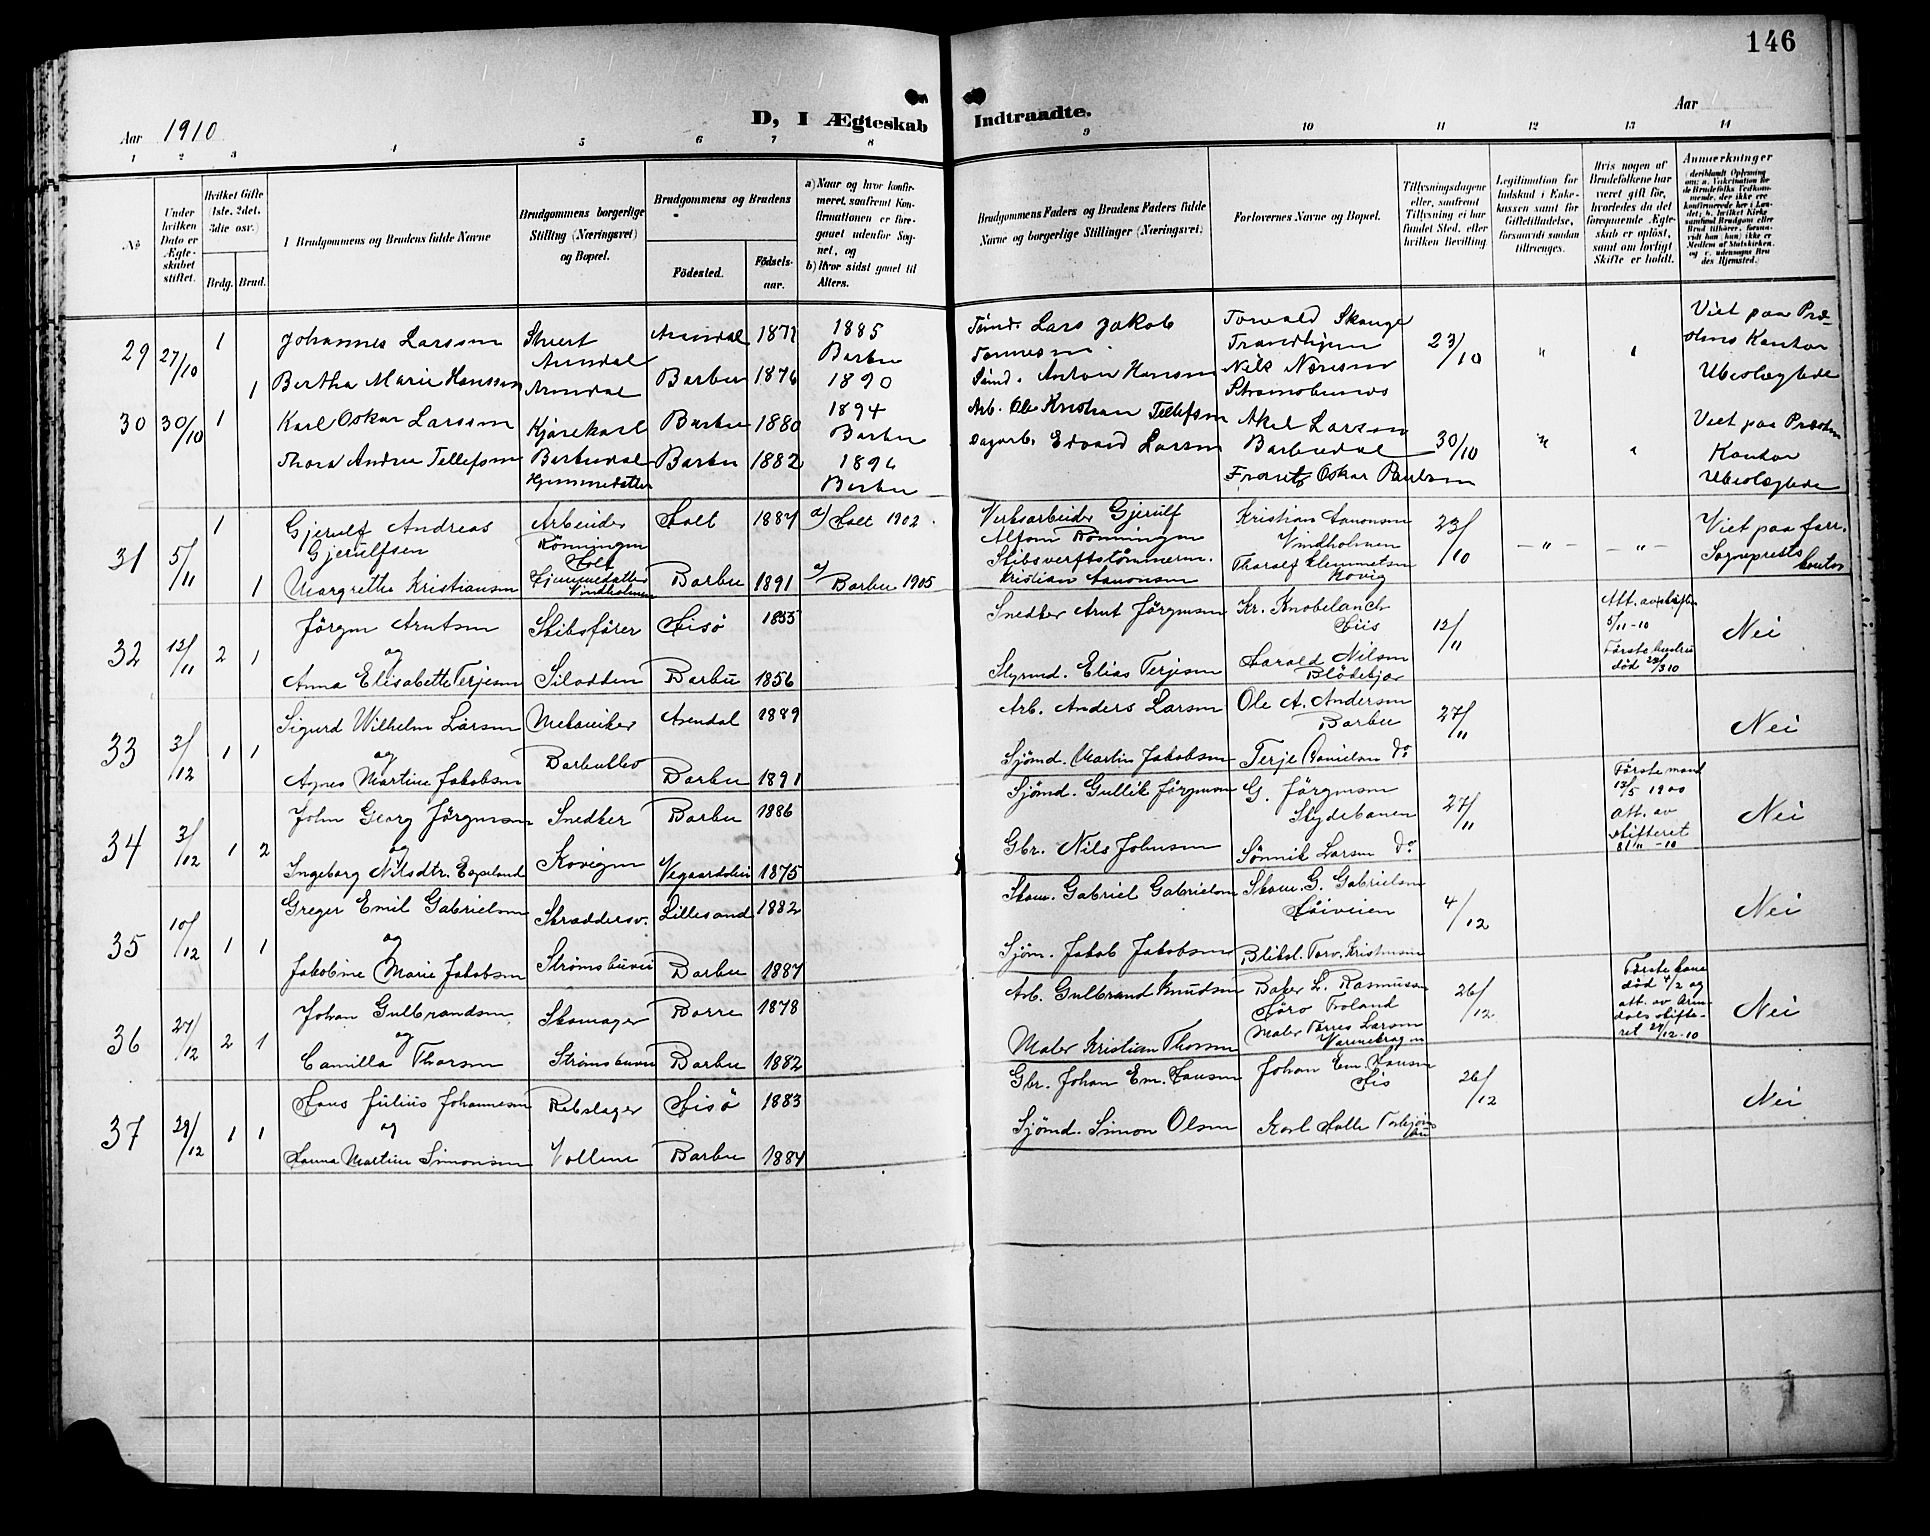 146
Aar 1910
D, I Ægteskab
Indtraadte.
Aar
1 2 3 4 5 6 7 8
9 10 11 12 13 14
№
Under hvilken Dato er Ægteskabet stiftet.
Hvilket Gifte 1ste, 2det, 3die osv.)
Brdg. Brud.
Brudgommens og Brudens fulde Navne
Brudgommens borgerlige Stilling (Næringsvei) og Bopæl.
Brudgommens og Brudens
Födested.
Födselsaar.
a) Naar og hvor konfirmeret, saafremt Konfirmationen er foregaaet udenfor Sognet, og
b) Hvor sidst gaaet til Alters.
Brudgommens Faders og Brudens Faders fulde Navne og borgerlige Stillinger (Næringsvei)
Forlovernes Navne og Bopæl.
Tillysningsdagene eller, saafremt Tillysning ei har fundet Sted, efter hvilken Bevilling.
Legitimation for Indskud i Enkekassen samt for Giftetilladelse, forsaavidt saadan tiltrænges.
Hvis nogen af Brudefolkene har været gift för, hvorledes da det foregaaende Ægteskab er oplöst, samt om lovligt Skifte er holdt.
Anmærkninger
29 27/10 1 Johannes Larsen Arendal 1871 1885
Arendal Barbu
1 Bertha Marie Hansen Arendal Barbu 1876 1890
Lars Jakob
Anton Hansen
Torvald
23/10 " "
Viet paa Præstens Kontor
Ubeslægtede
30 30/10 1 Karl Oskar Larsen Kjørekarl Barbu 1880 1894 Barbu
Thora Andrea Tellefsen Barbudal Barbu 1882 1896 Barbu
Hjemmedatter
Arb. Ole Kristian Tellefsen
Dagarb. Edvard Larsen
Aksel Larsen
Barbudal
Oskar Paulsen
30/10 " "
Viet paa Præstens Kontor
Ubeslægtede
31 5/11 1 Gjerulf Andreas Gjerulfsen Arbeider Rönningen Holt Holt 1887 a) Holt 1902.
1 Margrethe Kristiansen Hjemmedatter Vindholmen Barbu 1891 a) Barbu 1905
Verksarbeider Gjerulf Alfsen Rönningen
Skibsverftstömmerm. Kristian Aanonsen
Kristian Aanonsen Vindholmen
Tharalf Klemmetsen Kovig
23/10 — " — — " —
Viet paa
Sogneprests kontor
32 12/11 2 1 Jörgen Arntsen Skibsförer Hisö 1855
og
Anna Elisabette Terjesen Silodden Barbu 1856
Snedker Arnt Jörgensen
Styrmd. Elias Terjesen
Kr. Knobelauch His
Harald Nilsen Blödekjær
12/11
Att. av skiften 5/11-10
Förste hustru död
Nei
33 3/12 1 1 Sigurd Wilhelm Larsen Mekaniker Arendal 1889
og
Agnes Martine Jakobsen Barbu 1891
Arb. Anders Larsen
Sjömd. Martin Jakobsen
Ole A. Andersen Barbu
Terje Danielsen do
27/11
Nei
34 3/12 1 2 John Georg Jörgensen Snedker Barbu 1886
og
Ingeborg Nilsdtr. Espeland Kovigen Vegaardshei 1875
Sjömd. Gullik Jörgensen
Gbr. Nils Johnsen
G. Jörgensen Skydebanen
Sönnik Larsen do
27/11
Förste mand 1900
att. av skifteret
Nei
35 10/12 1 1 Greger Emil Gabrielsen Skræddersv. Lillesand 1882
og
Jakobine Marie Jakobsen Strömsbuvei Barbu 1887
Skom. Gabriel Gabrielsen
Sjöm. Jakob Jakobsen
Skom. G. Gabrielsen Höiveien
Bliksl. Torv. Kristensen
4/12
Nei
36 27/12 2 1 Johan Gulbrandsen Skomager Borre 1878
og
Camilla Thorsen Strömsbuvei Barbu 1882
Arb. Gulbrand Knudsen
Maler Kristian Thorsen
Baker L. Rasmussen
Froland
Maler Larsen
26/12
Förste kone död 4/2 og att. av Arendals skifteret
Nei
37 29/12 1 1 Hans Julius Johannesen Rebslager Hisö 1883
og
Hanna Martine Simonsen Vollene Barbu 1884
Gbr. Johan Em. Hansen
Sjömd. Simon Olsen
Johan Em. Hansen His
Karl
26/12
Nei